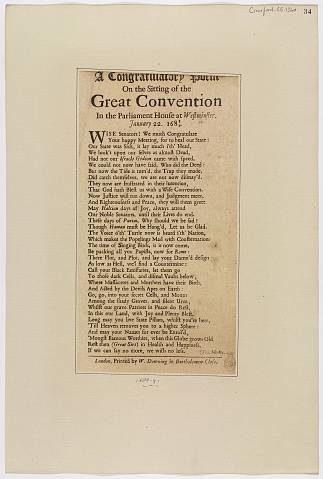 Crawford.EB.1360
34
A Congratulatory Poem
On the Sitting of the
Great Convention
In the Parliament House at Westminster.
January 22. 168
WISE Senators! We much Congratulate
Your happy Meeting, for to heal our State:
Our State was Sick, it lay much i'th' Head,
We look't upon our selves as almost Dead,
Had not our Hendy Godson came with speed,
We could not now have said, Who did the Deed:
But now the Tide is turn'd, the Trap they made,
Did catch themselves, we are not now dismay'd.
They now are frustrated in their Intention,
That God hath Blest us with a Wise Convention.
Now Justice will run down, and Judgment meet,
And Righteousness and Peace, they will them greet.
May Halcion days of Joy, always attend
Our Noble Senators, until their Lives do end.
These days of Purim, Why should we be sad?
Though Haman must be Hang'd, Let us be Glad.
The Voice o'th' Turtle now is heard i'th' Nation,
Which makes the Popelings Mad with Consternation:
The time of Singing Birds, it is now come,
Be packing all you Papists, now for Rome;
There Plot, and Plot, and lay your Damn'd design
As low as Hell, we'l find a Countermine:
Call your Black Emissaries, let them go
To those dark Cells, and dismal Vaults below;
Where Massacres and Murthers have their Birth,
And Aided by the Devils Apes on Earth:
Go, go, into your secret Cells, and Mount
Among the shady Graves, and
Whilst our grave Patriots in Peace do Rest,
In this our Land, with Joy and Plenty Blest,
Long may you live State Pillars, whilst you're here,
'Till Heaven removes you to a higher Sphere:
And may your Names for ever be Enroll'd,
'Mongst Famous Worthies, when this Globe grows Old.
Rest then (Great Sirs) in Health and Happiness,
If we can say no more, we wish no less.
London, Printed by W. Downing in Bartholomew-Close.